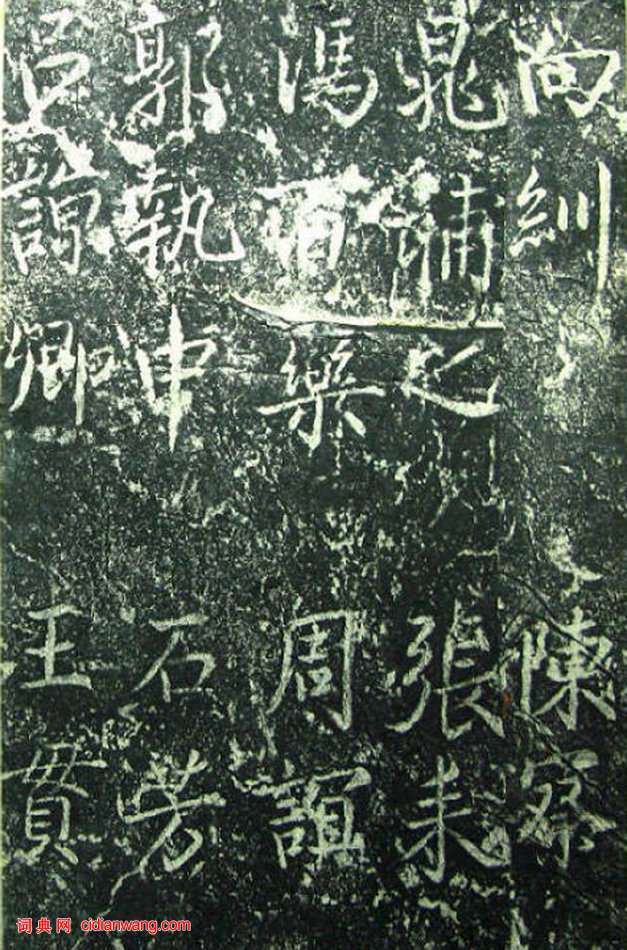 向紃 陳察
晁補之 張耒
馮百藥 周誼
郭執中 石芳
呂諒卿 王貫
词典网 cidianwang.com